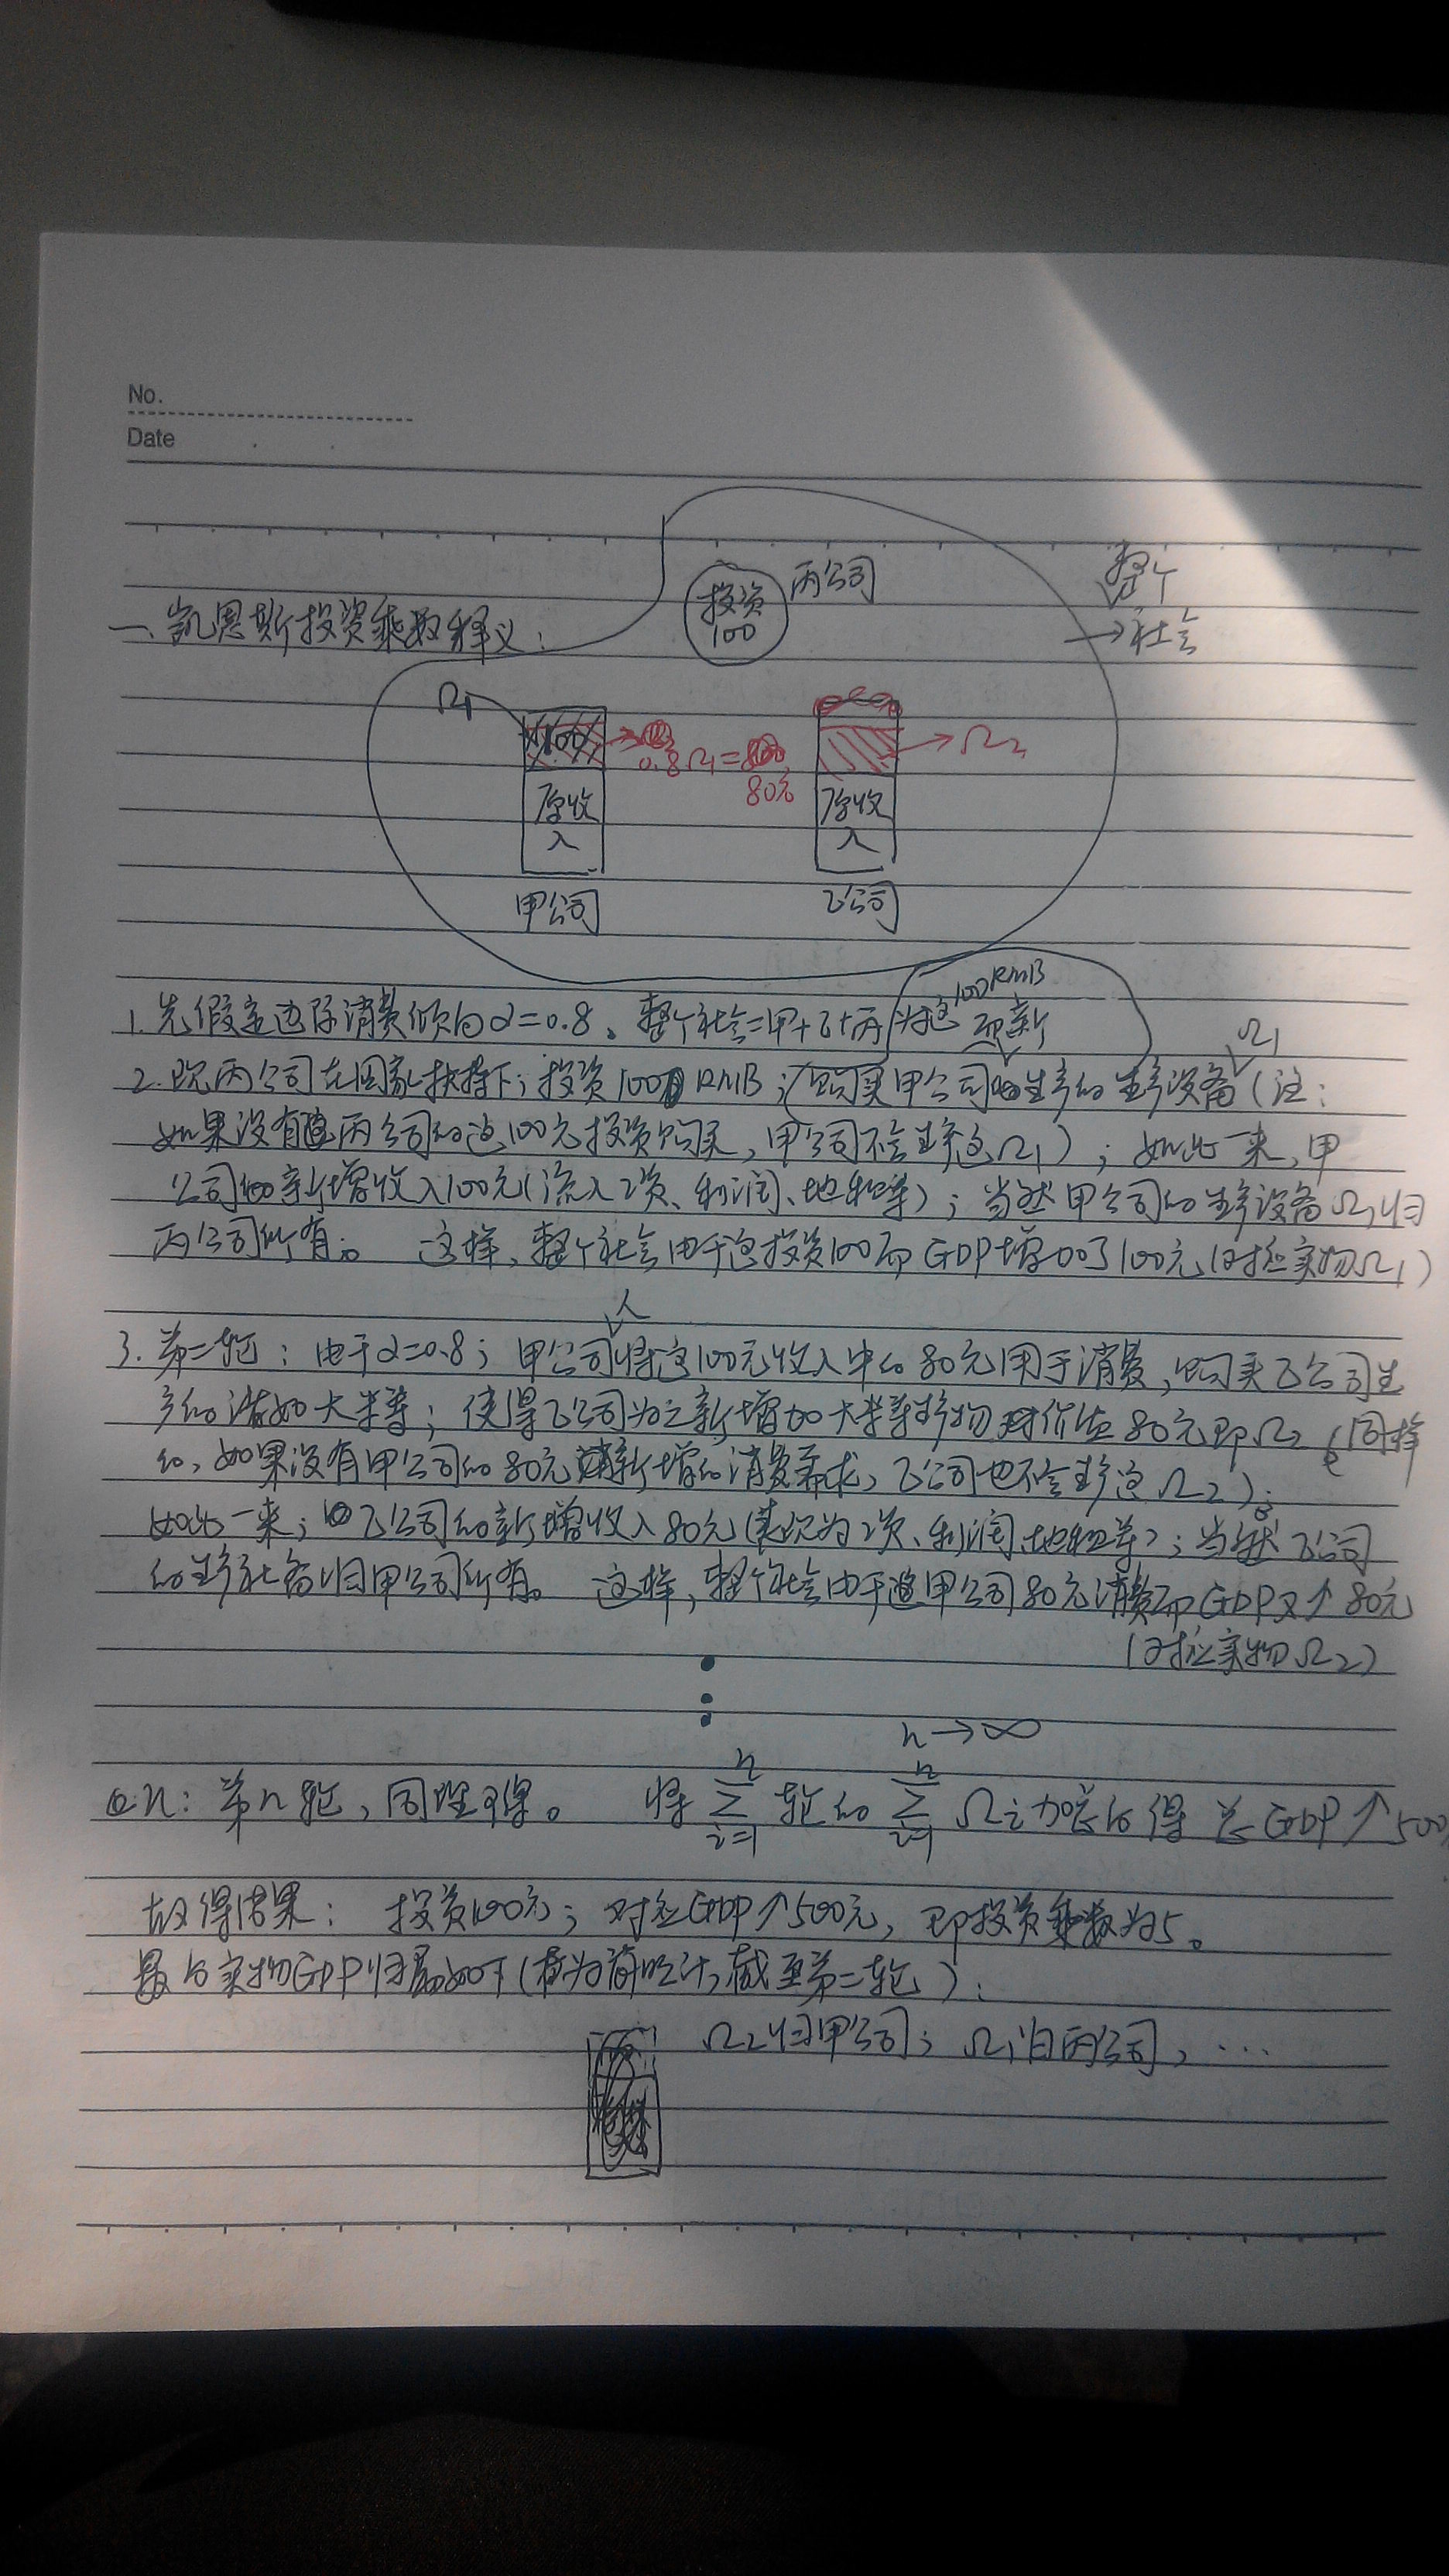 No.
Date
丙公司
整个
投资
100
社会
一、凯恩斯投资乘数释义：
Ω1
100
0.8Ω1=
80元
Ω2
原收
入
原收
入
甲公司
乙公司
100RMB
1.先假定边际消费倾向α=0.8。整个社会=甲+乙+丙 为这 而新
Ω1
2.现丙公司在国家扶持下；投资100 RMB；购买甲公司 生产的生产设备（注：
如果没有 丙公司的这100元投资购买，甲公司不会生产这Ω1）；如此一来，甲
公司 新增收入100元（流入工资、利润、地租等）；当然甲公司的生产设备Ω1归
丙公司所有。 这样，整个社会由于这投资100而GDP增加了100元（对应实物Ω1）
人
3.第二轮：由于α=0.8；甲公司将这100元收入中的80元用于消费，购买乙公司生
产的诸如大米等；使得乙公司为之新增加大米等产物 价值80元即Ω2（同样
的，如果没有甲公司的80元 新增的消费需求，乙公司也不会生产这Ω2）；
如此一来；乙公司的新增收入80元（ 为工资、利润、地租等）；当然乙公司
的生产 归甲公司所有。 这样，整个社会由于这甲公司80元消费而GDP又↑80元
（对应实物Ω2）
n→∞
n：第n轮，同理可得。 将 n∑i=1 轮的 n∑i=1 Ωi加总的得 总GDP↑500
故得结果： 投资100元；对应GDP↑500元，即投资乘数为5。
最后实物GDP归属如下（ 为简略计，截至第二轮）：
Ω2归甲公司；Ω1归丙公司，…